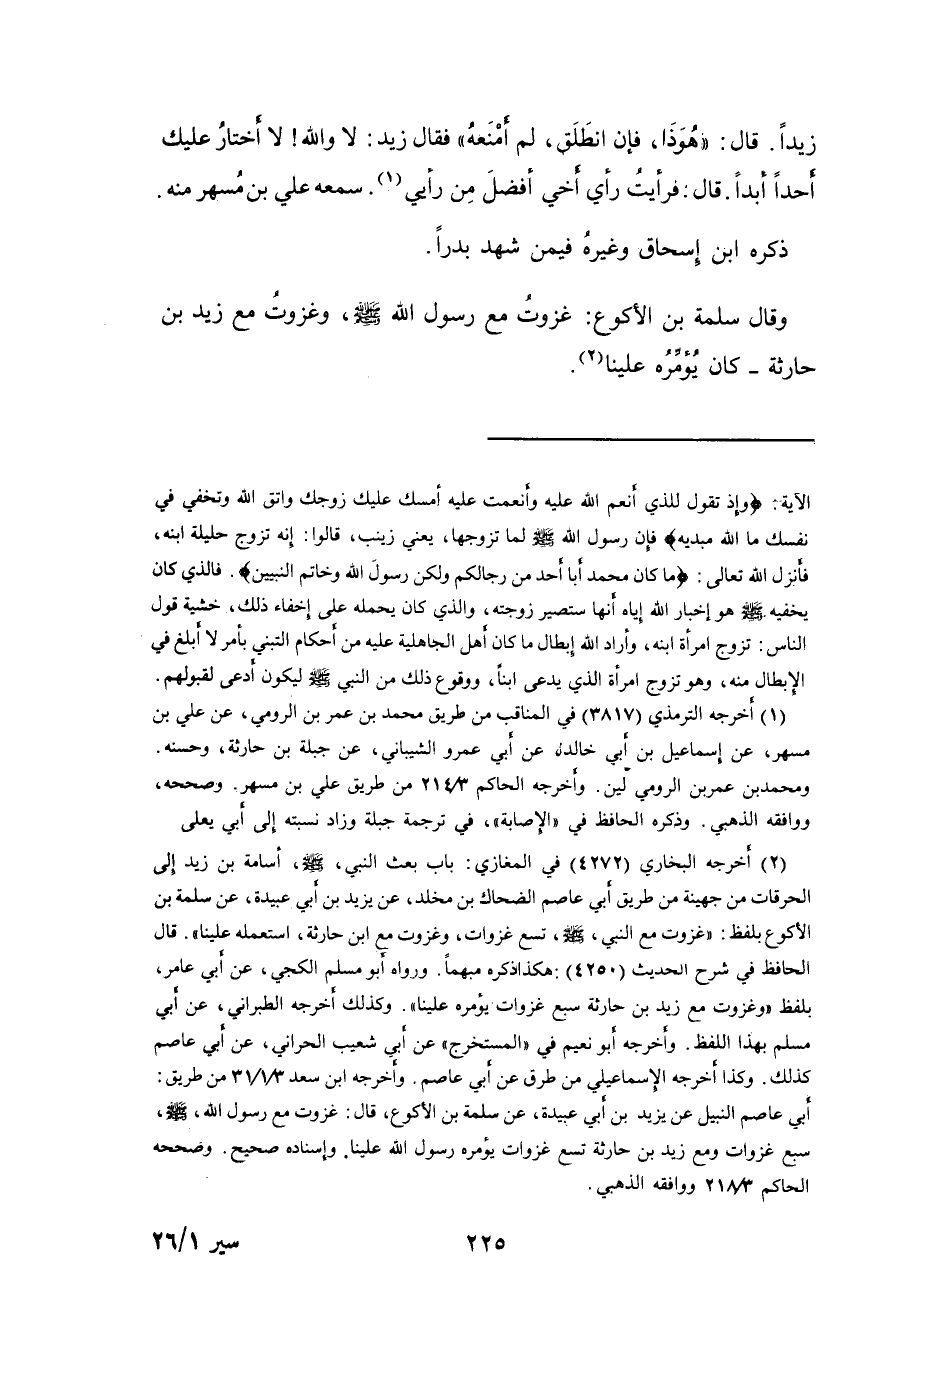 زيداً. قال: «هُوَذَا، فإن انطَلَق، لم أَمْنَعهُ» فقال زيد: لا والله! لا أَختارُ عليك
أَحداً أَبداً. قال: فرأَيتُ رأي أَخي أفضلَ مِن رأيي(١). سمعه علي بن مُسهر منه.
ذكره ابن إِسحاق وغيرهُ فيمن شهد بدراً.
وقال سلمة بن الأكوع: غزوتُ مع رسول الله ﷺ، وغزوتُ مع زيد بن
حارثة ـ كان يُؤمِّرُه علينا(٢).
الآية: ﴿وإذ تقول للذي أَنعم الله عليه وأَنعمت عليه أمسك عليك زوجك واتق الله وتخفي في
نفسك ما الله مبديه﴾ فإن رسول الله ﷺ لما تزوجها، يعني زينب، قالوا: إنه تزوج حليلة ابنه،
فأَنزل الله تعالى: ﴿ما كان محمد أبا أحد من رجالكم ولكن رسولَ الله وخاتم النبيين﴾. فالذي كان
يخفيه ﷺ هو إخبار الله إياه أنها ستصير زوجته، والذي كان يحمله على إِخفاء ذلك، خشية قول
الناس: تزوج امرأة ابنه، وأراد الله إبطال ما كان أهل الجاهلية عليه من أحكام التبني بأمر لا أبلغ في
الإِبطال منه، وهو تزوج امرأة الذي يدعى ابناً، ووقوع ذلك من النبي ﷺ ليكون أدعى لقبولهم.
(١) أَخرجه الترمذي (٣٨١٧) في المناقب من طريق محمد بن عمر بن الرومي، عن علي بن
مسهر، عن إسماعيل بن أبي خالد، عن أبي عمرو الشيباني، عن جبلة بن حارثة، وحسنه.
ومحمدبن عمربن الرومي لين. وأَخرجه الحاكم ٢١٤/٣ من طريق علي بن مسهر. وصححه،
ووافقه الذهبي. وذكره الحافظ في «الإِصابة»، في ترجمة جبلة وزاد نسبته إلى أبي يعلى
(٢) أَخرجه البخاري (٤٢٧٢) في المغازي: باب بعث النبي، ﷺ، أسامة بن زيد إلى
الحرقات من جهينة من طريق أبي عاصم الضحاك بن مخلد، عن يزيد بن أبي عبيدة، عن سلمة بن
الأكوع بلفظ: «غزوت مع النبي، ﷺ، تسع غزوات، وغزوت مع ابن حارثة، استعمله علينا». قال
الحافظ في شرح الحديث (٤٢٥٠): هكذا ذكره مبهماً. ورواه أبو مسلم الكجي، عن أبي عامر،
بلفظ «وغزوت مع زيد بن حارثة سبع غزوات يؤمره علينا». وكذلك أَخرجه الطبراني، عن أبي
مسلم بهذا اللفظ. وأَخرجه أبو نعيم في «المستخرج» عن أبي شعيب الحراني، عن أبي عاصم
كذلك. وكذا أَخرجه الإسماعيلي من طرق عن أبي عاصم. وأخرجه ابن سعد ٣١/١/٣ من طريق:
أبي عاصم النبيل عن يزيد بن أبي عبيدة، عن سلمة بن الأكوع، قال: غزوت مع رسول الله، ﷺ،
سبع غزوات ومع زيد بن حارثة تسع غزوات يؤمره رسول الله علينا. وإسناده صحيح. وصححه
الحاكم ٢١٨/٣ ووافقه الذهبي.
٢٢٥ سير ٢٦/١